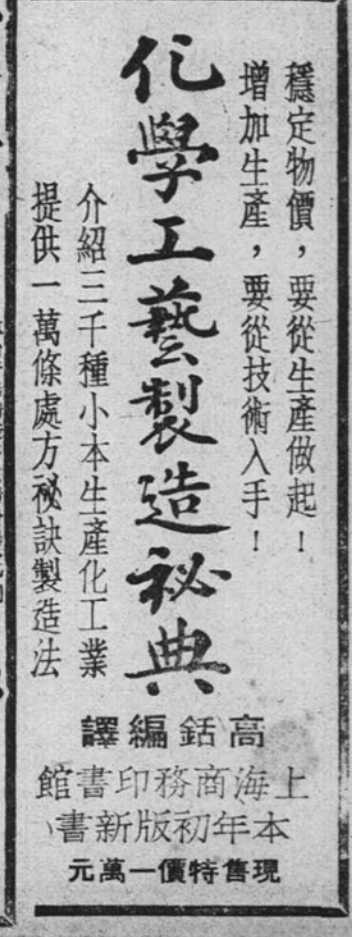 穩定物價，要從生產做起！
增加生產，要從技術入手！
化學工藝製造祕典
介紹三千種小本生產化工業
提供一萬條處方祕訣製造法
高銛編譯
上海商務印書館
本年初版新書
現售特價一萬元